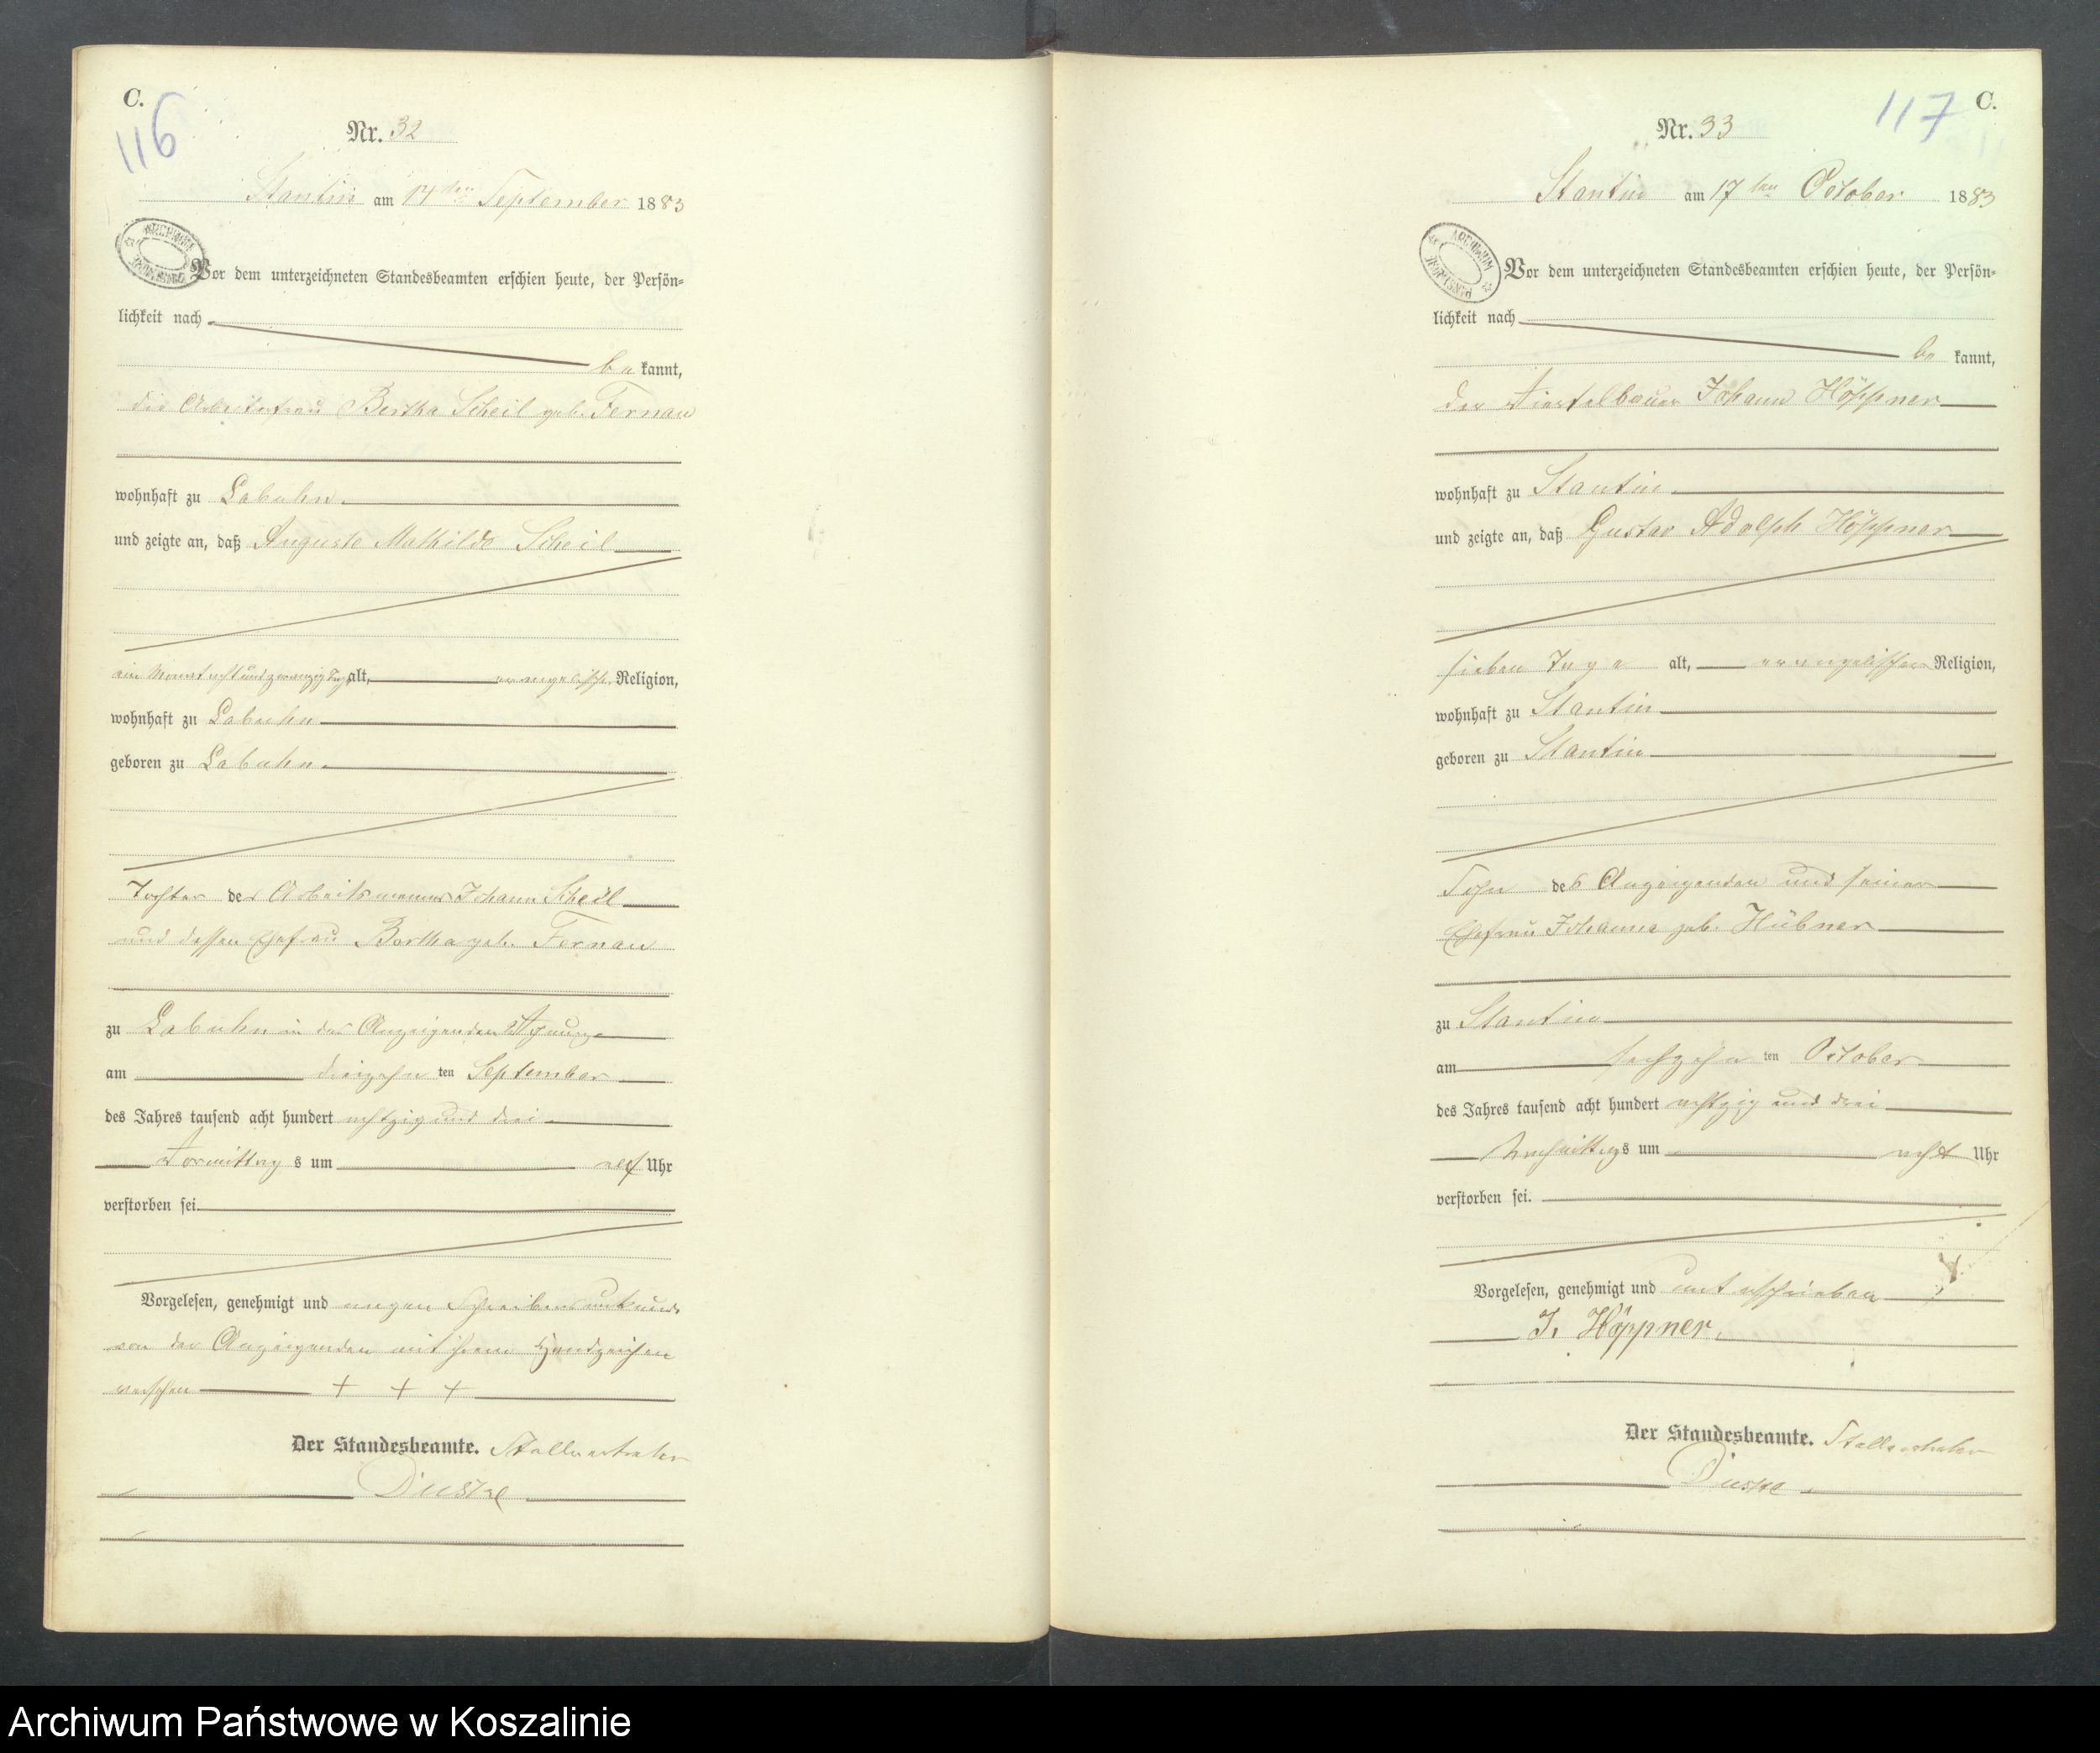 C.
116
Nr. 32
Stantin am 14ten September 1883
Vor dem unterzeichneten Standesbeamten erschien heute, der Persön-
lichkeit nach
be kannt,
die Arbeiterfrau Bertha Scheil geb. Fernau
wohnhaft zu Labuhn.
und zeigte an, daß Auguste Mathilde Scheil
ein Monat achtundzwanzig Tage alt, evangelischer Religion,
wohnhaft zu Labuhn
geboren zu Labuhn.
Tochter des Arbeitsmannes Johann Scheil
und dessen Ehefrau Bertha geb. Fernau
zu Labuhn in der Anzeigenden Wohnung
am dreizehn ten September
des Jahres tausend acht hundert achtzig und drei
Vormittag s um elf Uhr
verstorben sei.
Vorgelesen, genehmigt und wegen Schreibensunkunde
von der Anzeigenden mit ihrem Handzeichen
versehen + + +
Der Standesbeamte. Stellvertreter
ARCHIWUM
C.
117
Nr. 33
Stantin am 17ten October 1883
Vor dem unterzeichneten Standesbeamten erschien heute, der Persön-
lichkeit nach
be kannt,
der Viertelbauer Johann Höppner
wohnhaft zu Stantin.
und zeigte an, daß Gustav Adolph Höppner
sieben Tage alt, evangelischer Religion,
wohnhaft zu Stantin
geboren zu Stantin
Sohn des Anzeigenden und seiner
Ehefrau Johanna geb. Hübner
zu Stantin
am sechzehn ten October
des Jahres tausend acht hundert achtzig und drei
Nachmittags um acht Uhr
verstorben sei.
Vorgelesen, genehmigt und unterschrieben
J. Höppner.
Der Standesbeamte. Stellvertreter
ARCHIWUM
Archiwum Państwowe w Koszalinie